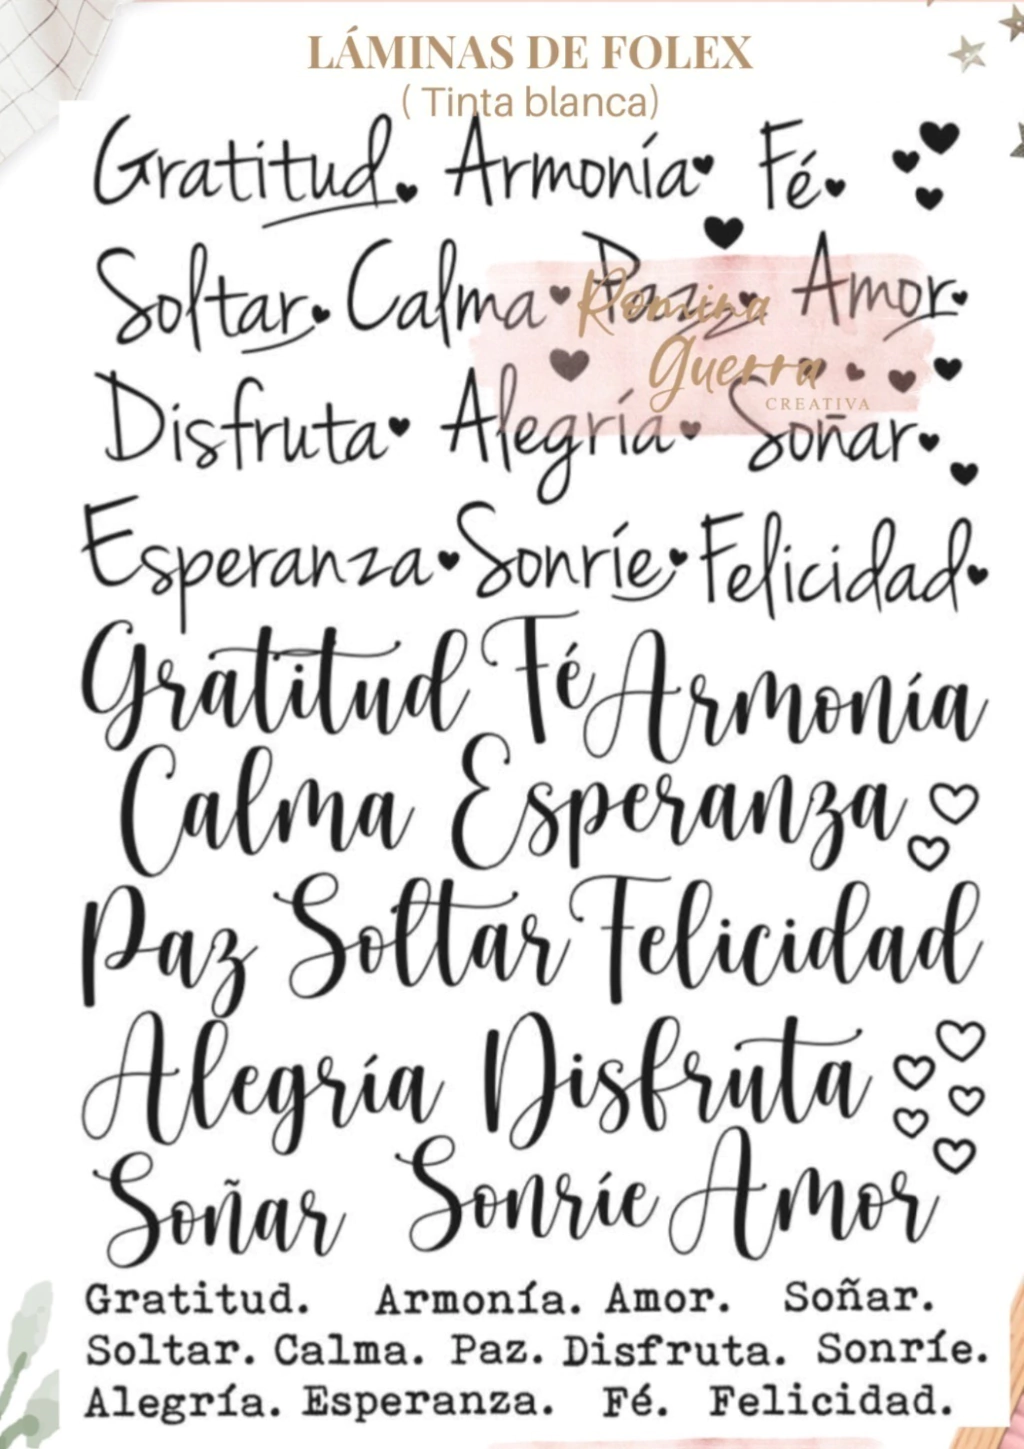 LÁMINAS DE FOLEX
( Tinta blanca)
Gratitud. Armonía Fé
Soltar Calma Paz Amor
Romina
Guerra
CREATIVA
Disfruta Alegría Soñar
Esperanza Sonríe Felicidad
Gratitud Fé Armonía
Calma Esperanza
Paz Soltar Felicidad
Alegría Disfruta
Soñar Sonríe Amor
Gratitud. Armonía. Amor. Soñar.
Soltar. Calma. Paz. Disfruta. Sonríe.
Alegría. Esperanza. Fé. Felicidad.